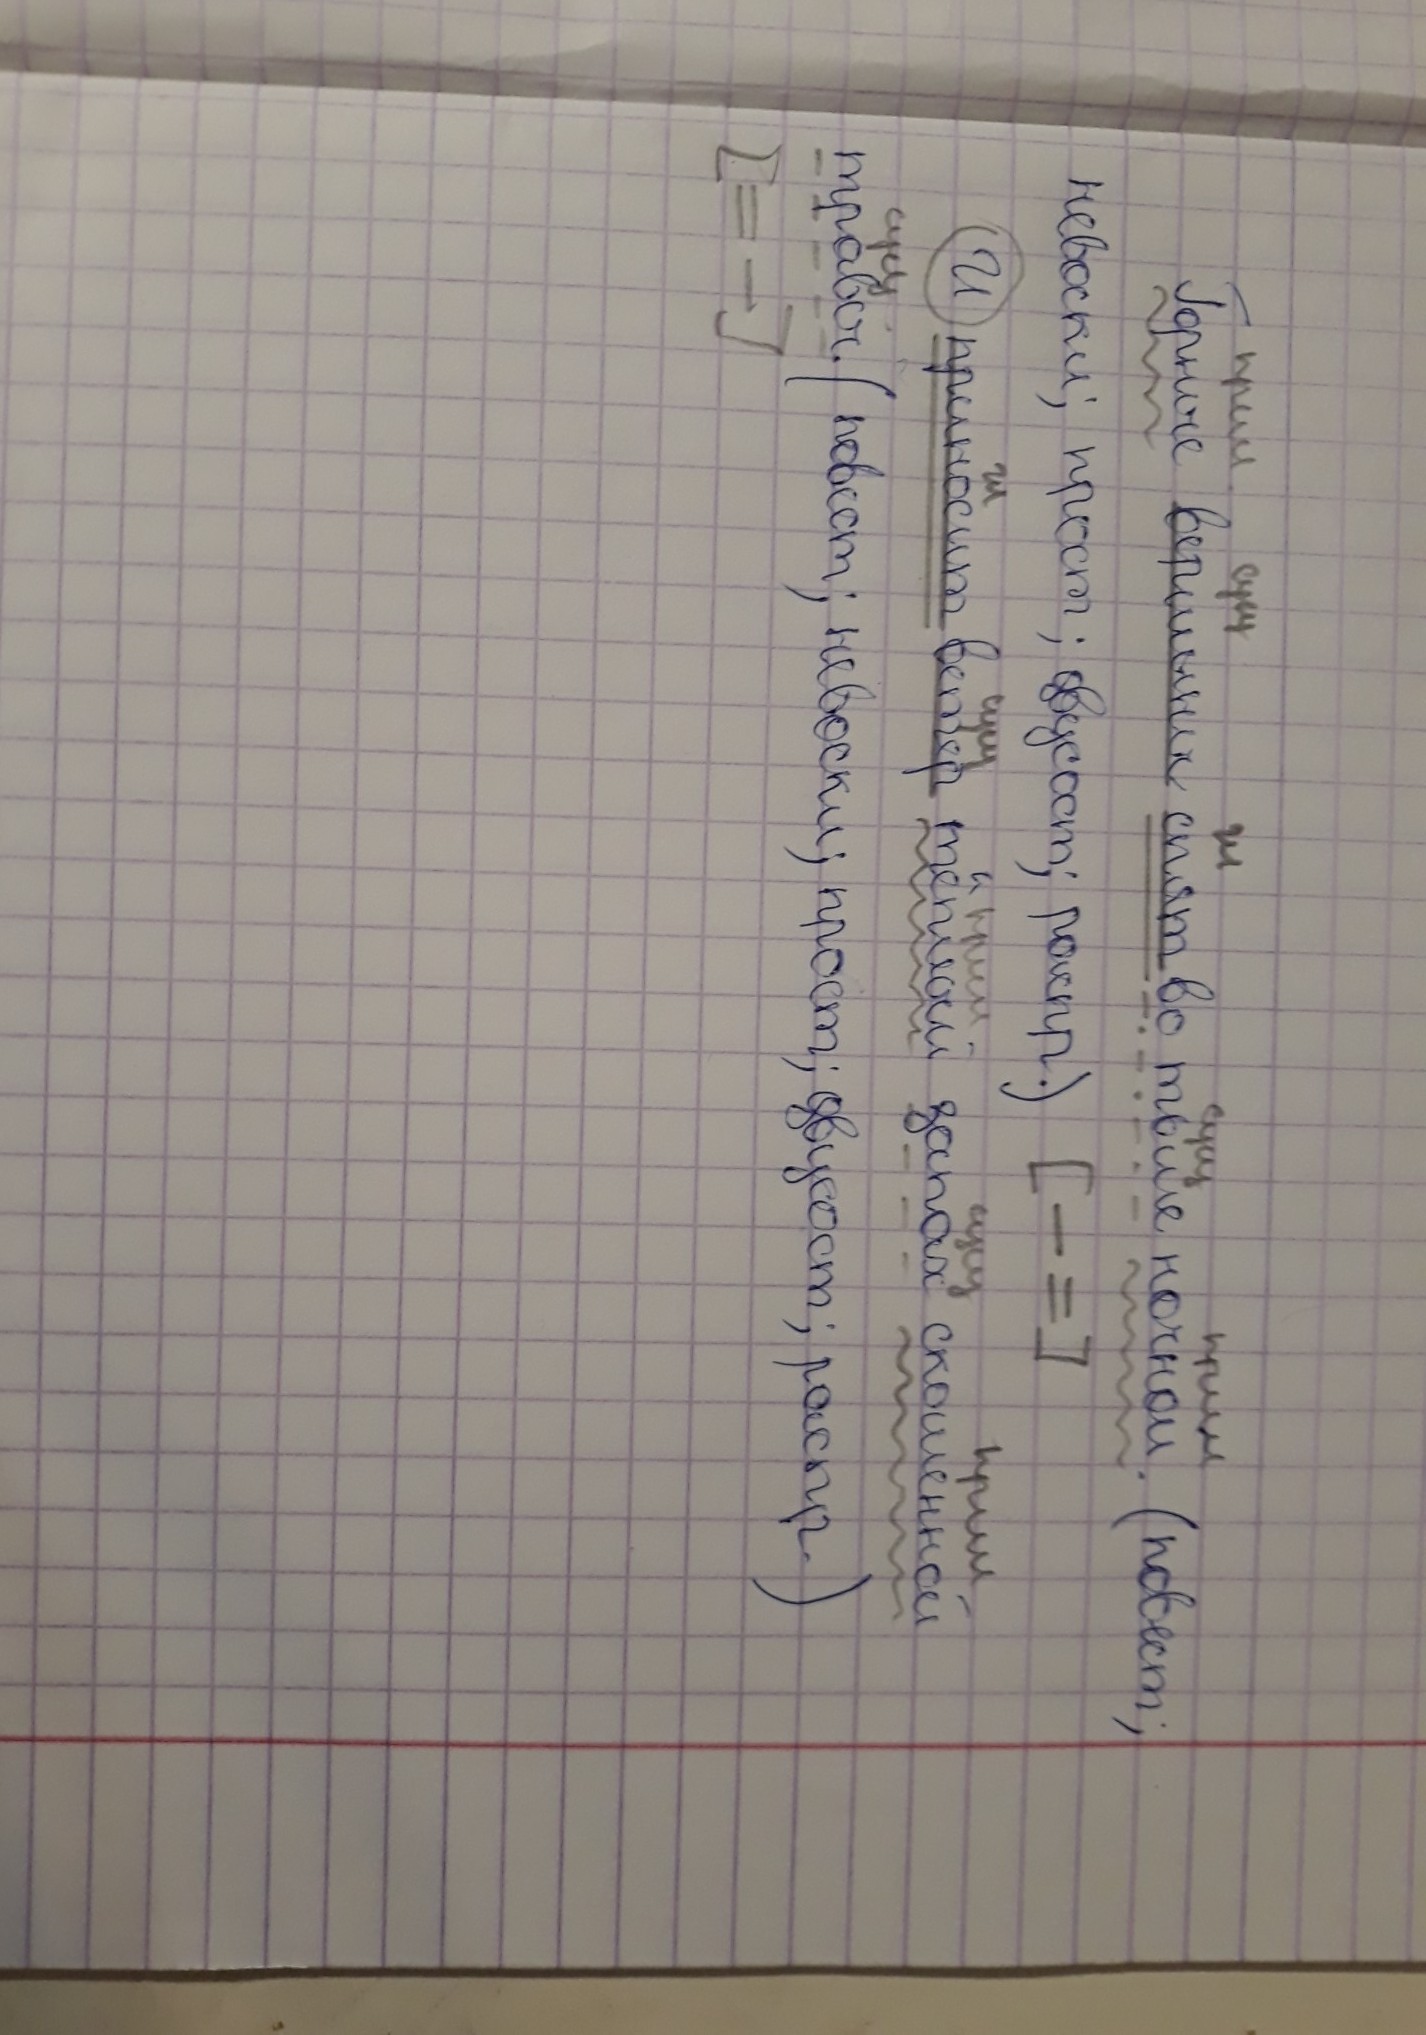 прил. сущ гл сущ прил
Горные вершины спят во тьме ночной. (повест;
невоскл; прост; двусост; распр.) [— =]
гл сущ прил. сущ прил
И приносит ветер теплый запах скошенной
сущ
травы. (повест; невоскл; прост; двусост; распр.)
[= —]